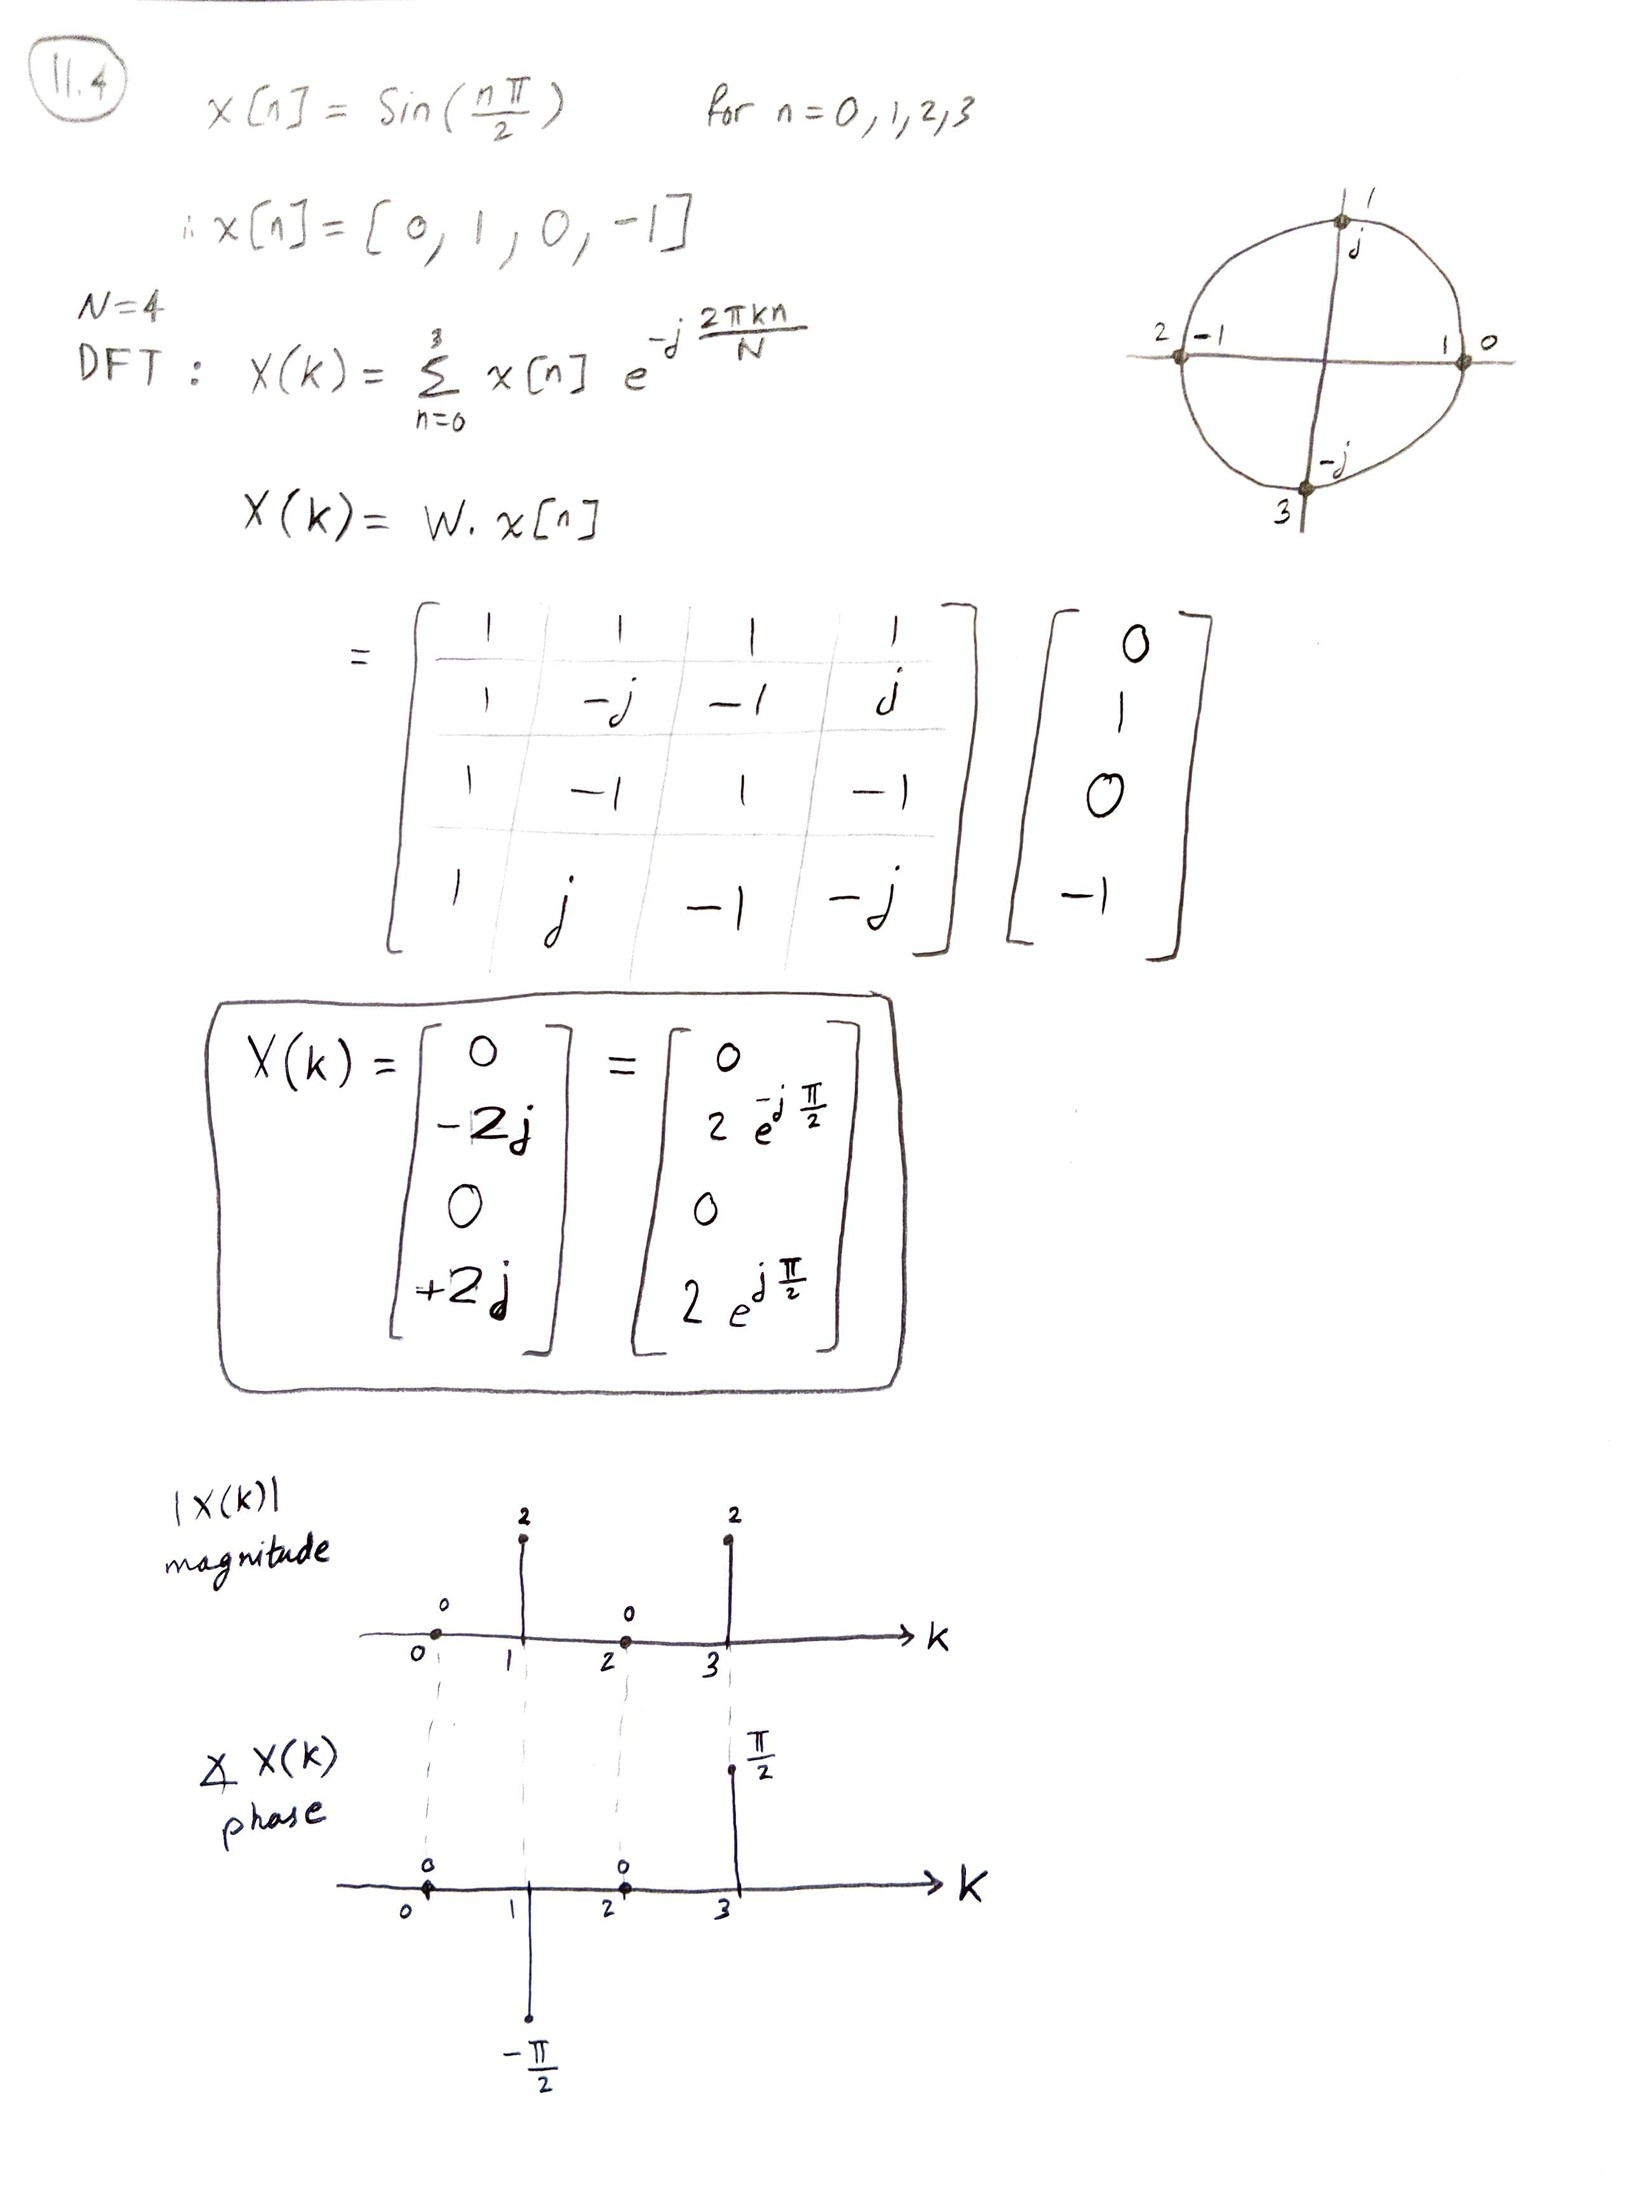 11.4
x[n] = Sin(nπ/2) for n=0,1,2,3
∴ x[n] = [0, 1, 0, -1]
N=4
DFT : X(k) = Σ_{n=0}^{3} x[n] e^{-j 2πkn/N}
1
j
2 -1 1 0
-j
3
X(k) = W. x[n]
= [ 1 1 1 1 ] [ 0 ]
[ 1 -j -1 j ] [ 1 ]
[ 1 -1 1 -1 ] [ 0 ]
[ 1 j -1 -j ] [ -1 ]
X(k) = [ 0 ] = [ 0 ]
[ -2j ] [ 2 e^{-j π/2} ]
[ 0 ] [ 0 ]
[ +2j ] [ 2 e^{j π/2} ]
|X(k)|
magnitude
2 2
0 0
0 1 2 3 K
∡ X(k)
phase
π/2
0 0
0 1 2 3 K
-π/2